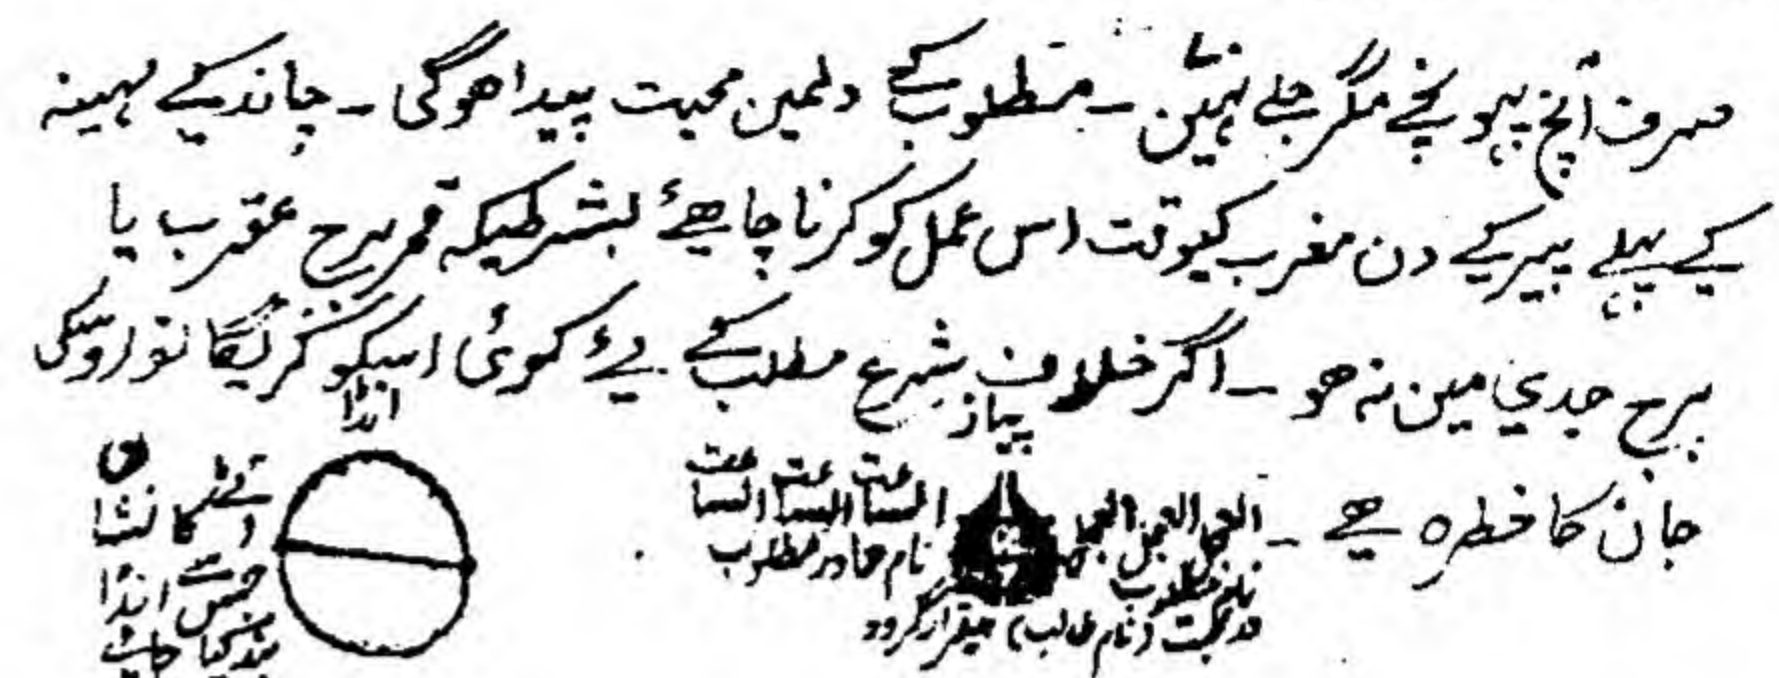 صرف آنچ پہونچے مگر جلے نہین ۔ مطلوب کے دلمین محبت پیدا ھوگی ۔ چاند کے مہینہ
کے پہلے پیر کے دن مغرب کیوقت اس عمل کو کرنا چاھیٔے بشرطیکہ قمر برج عقرب یا
برج جدی مین نہ ھو ۔ اگر خلاف شرع مطلب کے لیٔے کوئی اسکو کریگا تو اوسکی
جان کا خطرہ ھے ۔
پیاز
العجل العجل العجل
الساعت الساعت الساعت
نام مطلوب
نام مادر مطلوب
در محبت (نام طالب) بیقرار گردد
انڈا
کا نشان
جس سے انڈا
بند کیا جائے